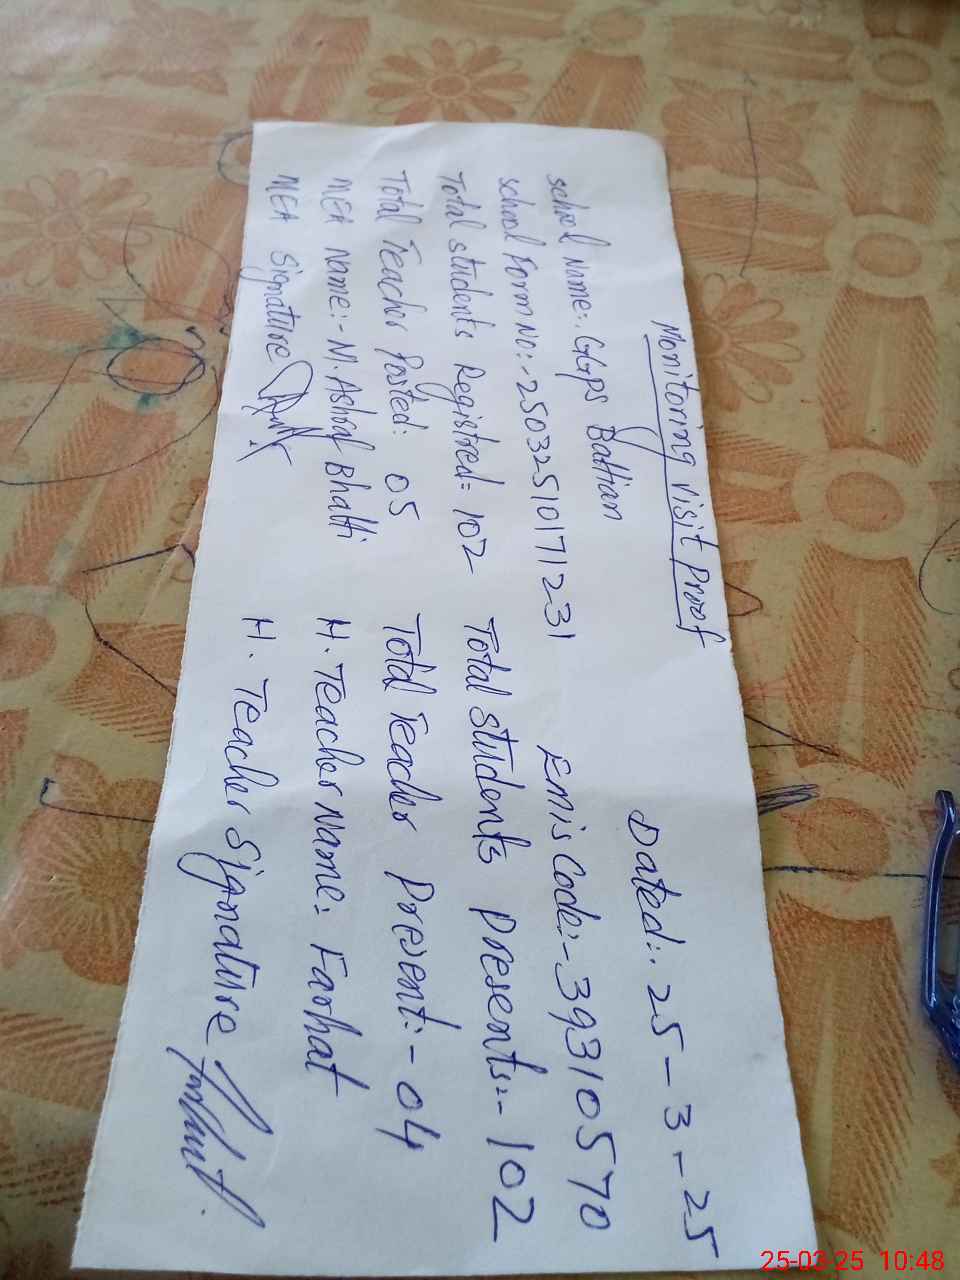 Monitoring visit proof
Dated:. 25-3-25
school Name:. GGPS Battian
school Form No:-250325101711231 Emis Code:-39310570
Total students Registred= 102 Total students Presents:-102
Total Teacher Posted: 05 Total Teacher Present:-04
MEA Name:-M.Ashraf Bhatti H. Teacher Name: Farhat
MEA Signature H. Teacher Signature Farhat
25-03-25 10:48